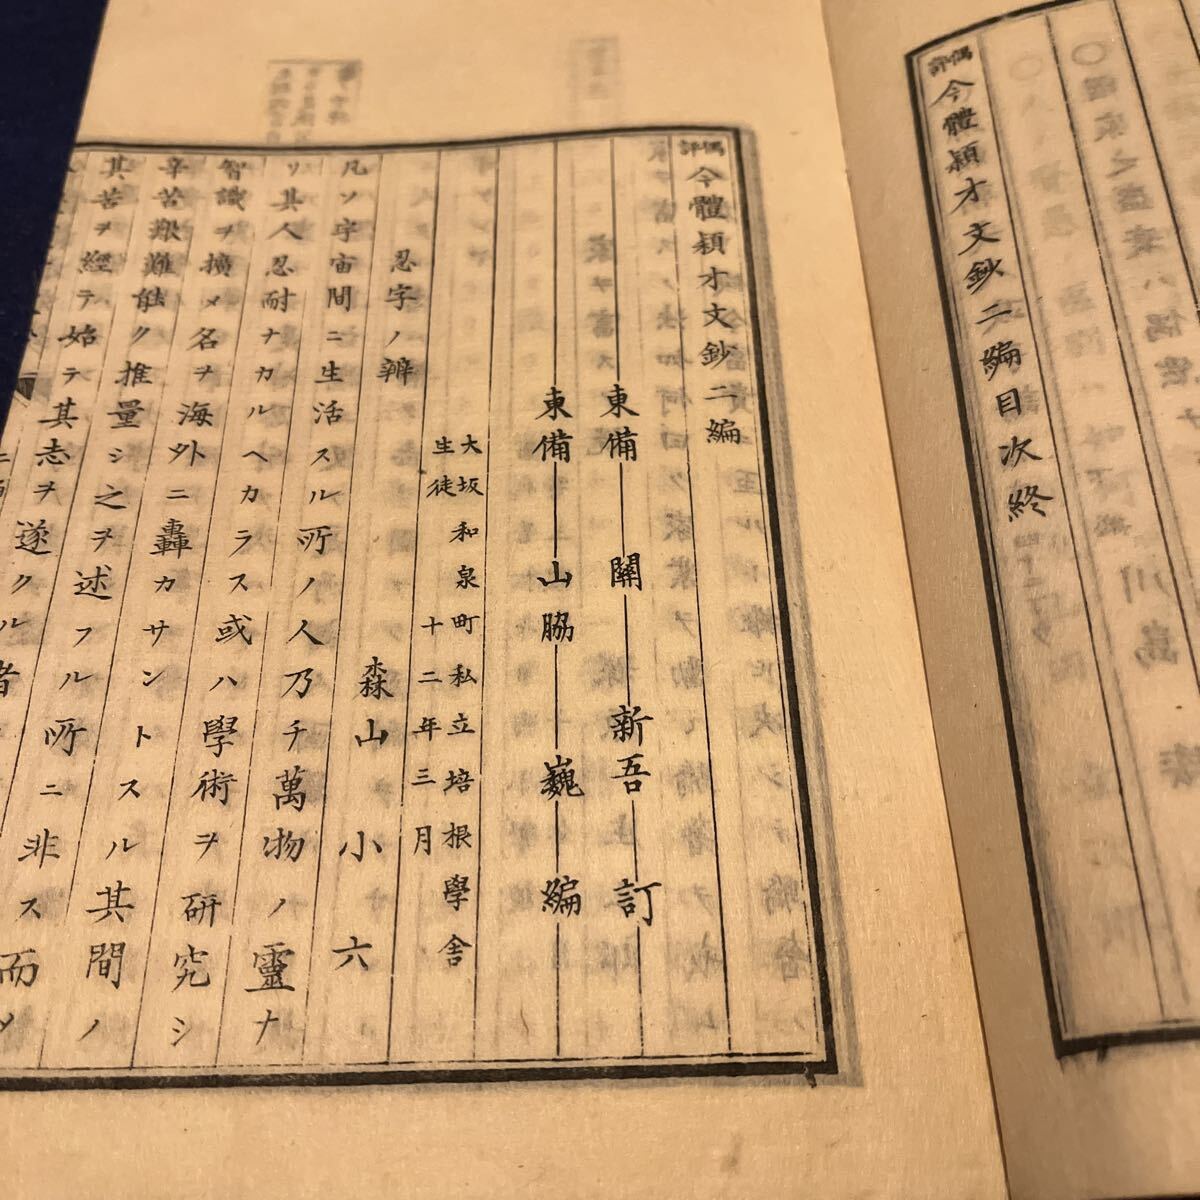 偶評今體頴才文鈔二編目次終
偶評今體頴才文鈔二編
東備 關 新吾 訂
東備 山脇 巍 編
大坂和泉町私立培根學舍
生徒 十二年三月
忍字ノ辨 森山小六
凡ソ宇宙間ニ生活スル所ノ人乃チ萬物ノ靈ナ
リ其人忍耐ナカルヘカラス或ハ學術ヲ研究シ
智識ヲ擴メ名ヲ海外ニ轟カサントスル其間ノ
辛苦艱難能ク推量シ之ヲ述フル所ニ非ス而メ
其苦ヲ經テ始テ其志ヲ遂クル者